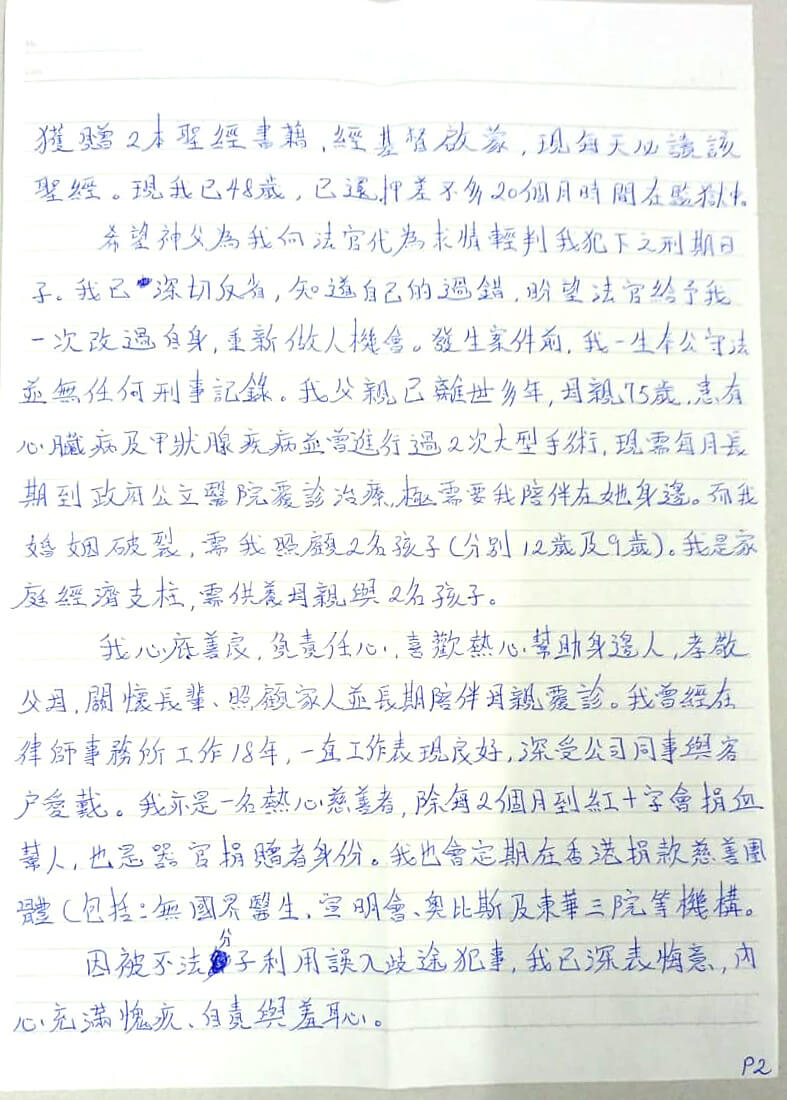 獲贈2本聖經書藉,經基督啟蒙,現每天必讀該
聖經。現我已48歲,已還押差不多20個月時間在監獄中。
希望神父為我向法官代為求情輕判我犯下之刑期日
子。我已深切反省,知道自己的過錯,盼望法官給予我
一次改過自身,重新做人機會。發生案件前,我一生奉公守法
並無任何刑事記錄。我父親已離世多年,母親75歲,患有
心臟病及甲狀腺疾病並曾進行過2次大型手術,現需每月長
期到政府公立醫院覆診治療,極需要我陪伴在她身邊。而我
婚姻破裂,需我照顧2名孩子(分別12歲及9歲)。我是家
庭經濟支柱,需供養母親與2名孩子。
我心底善良,負責任心,喜歡熱心幫助身邊人,孝敬
父母,關懷長輩、照顧家人並長期陪伴母親覆診。我曾經在
律師事務所工作18年,一直工作表現良好,深受公司同事與客
戶愛戴。我亦是一名熱心慈善者,除每2個月到紅十字會捐血
幫人,也是器官捐贈者身份。我也會定期在香港捐款慈善團
體(包括:無國界醫生、宣明會、奧比斯及東華三院等機構。
因被不法分子利用誤入歧途犯事,我已深表悔意,內
心充滿愧疚、自責與羞恥心。
P2